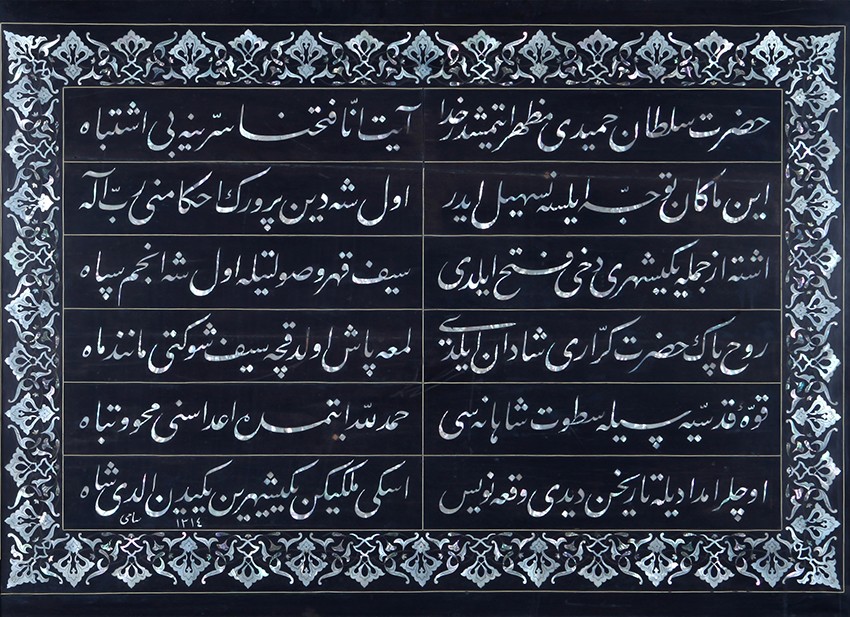 حضرت سلطان حمیدی مظهر ایتمشدر خدا
آیت انّا فتحنا سرّینه بی اشتباه
این ماکان توجّه ایلسه تسهیل ایدر
اول شه دین پرورك احکامنی ربّ اله
اشته از جمله یکیشهری دخی فتح ایلدی
سیف قهر و صولتیله اول شه انجم سپاه
روح پاك حضرت کرّاری شادان ایلدی
لمعه پاش اولدقچه سیف شوکتی مانند ماه
قوّهٔ قدسیّه سیله سطوت شاهانه سی
حمد لله ایتمده اعداسنی محو و تباه
اوچلر امدادیله تاریخن دیدی وقعه نویس
اسکی ملکیکن یکیشهرین یکیدن الدی شاه
سامی ١٣١٤